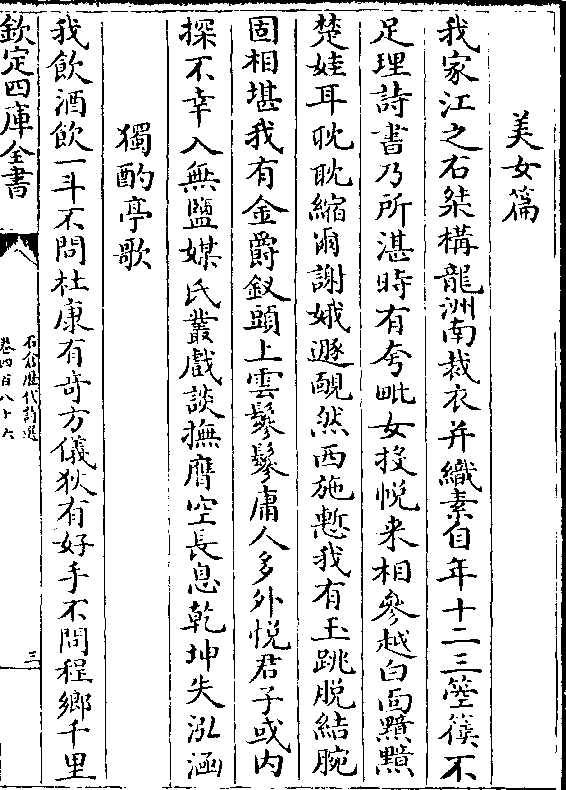 美女篇
我家江之石桀構龍洲南裁衣并織素自年十二三箜篌不
足理詩書乃所湛時有夸毗女投悦来相參越白面黰黰
楚娃耳耽耽縮𤕤謝娥遯靦然西施慙我有玉跳脱結腕
固相堪我有金爵釵頭上雲鬖鬖庸人多外悦君子或内
探不幸入無鹽媒氏叢戲談撫膺空長息乾坤失泓涵
獨酌亭歌
我飲酒飲一斗不問杜康有奇方儀狄有好手不問程鄉千里
欽定四庫全書
石倉歷代詩選
卷四百八十六
三